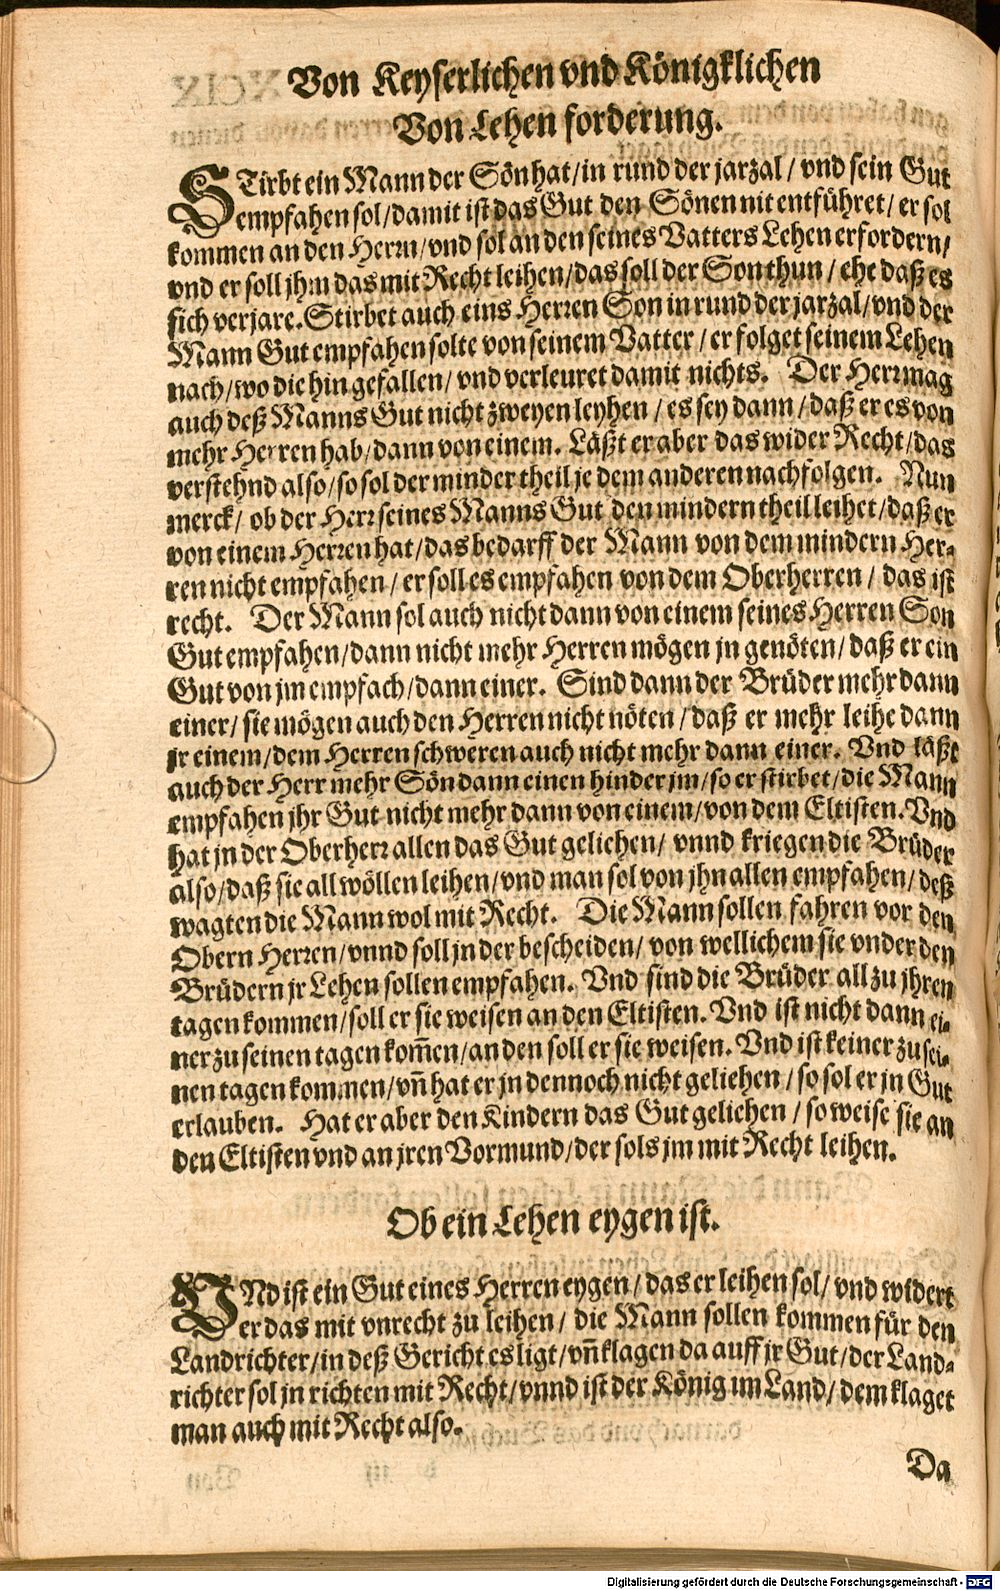 Von Keyserlichen vnd Königklichen
Von Lehen forderung.
STirbt ein Mann der Sön hat/in rund der jarzal/ vnd sein Gut
empfahen sol/damit ist das Gut den Sönen nit entführet/ er sol
kommen an den Herrn/vnd sol an den seines Vatters Lehen erfordern/
vnd er soll jhm das mit Recht leihen/das soll der Son thun/ ehe daß es
sich verjare. Stirbet auch eins Herren Son in rund der jarzal/vnd der
Mann Gut empfahen solte von seinem Vatter/ er folget seinem Lehen
nach/wo die hin gefallen/ vnd verleuret damit nichts. Der Herr mag
auch deß Manns Gut nicht zweyen leyhen/ es sey dann/ daß er es von
mehr Herren hab/dann von einem. Läßt er aber das wider Recht/das
verstehnd also/so sol der minder theil je dem anderen nachfolgen. Nun
merck/ ob der Herr seines Manns Gut den mindern theil leihet/daß er
von einem Herren hat/das bedarff der Mann von dem mindern Her-
ren nicht empfahen/ er soll es empfahen von dem Oberherren/ das ist
recht. Der Mann sol auch nicht dann von einem seines Herren Son
Gut empfahen/dann nicht mehr Herren mögen jn genöten/daß er ein
Gut von jm empfach/dann einer. Sind dann der Brüder mehr dann
einer/ sie mögen auch den Herren nicht nöten/daß er mehr leihe dann
jr einem/dem Herren schweren auch nicht mehr dann einer. Vnd läßt
auch der Herr mehr Sön dann einen hinder jm/so er stirbet/die Mann
empfahen jhr Gut nicht mehr dann von einem/von dem Eltisten. Vnd
hat jn der Oberherr allen das Gut geliehen/ vnnd kriegen die Brüder
also/daß sie all wöllen leihen/vnd man sol von jhn allen empfahen/ deß
wagten die Mann wol mit Recht. Die Mann sollen fahren vor den
Obern Herren/vnnd soll jn der bescheiden/ von wellichem sie vnder den
Brüdern jr Lehen sollen empfahen. Vnd sind die Brüder all zu jhren
tagen kommen/soll er sie weisen an den Eltisten. Vnd ist nicht dann ei-
ner zu seinen tagen kom̄en/an den soll er sie weisen. Vnd ist keiner zu sei-
nen tagen kommen/vn̄ hat er jn dennoch nicht geliehen/ so sol er jn Gut
erlauben. Hat er aber den Kindern das Gut geliehen/ so weise sie an
den Eltisten vnd an jren Vormund/der sols jm mit Recht leihen.
Ob ein Lehen eygen ist.
VNd ist ein Gut eines Herren eygen/ das er leihen sol/ vnd widert
er das mit vnrecht zu leihen/ die Mann sollen kommen für den
Landrichter/in deß Gericht es ligt/vn̄ klagen da auff jr Gut/der Land-
richter sol jn richten mit Recht/vnnd ist der König im Land/ dem klaget
man auch mit Recht also.
Da
Digitalisierung gefördert durch die Deutsche Forschungsgemeinschaft - DFG